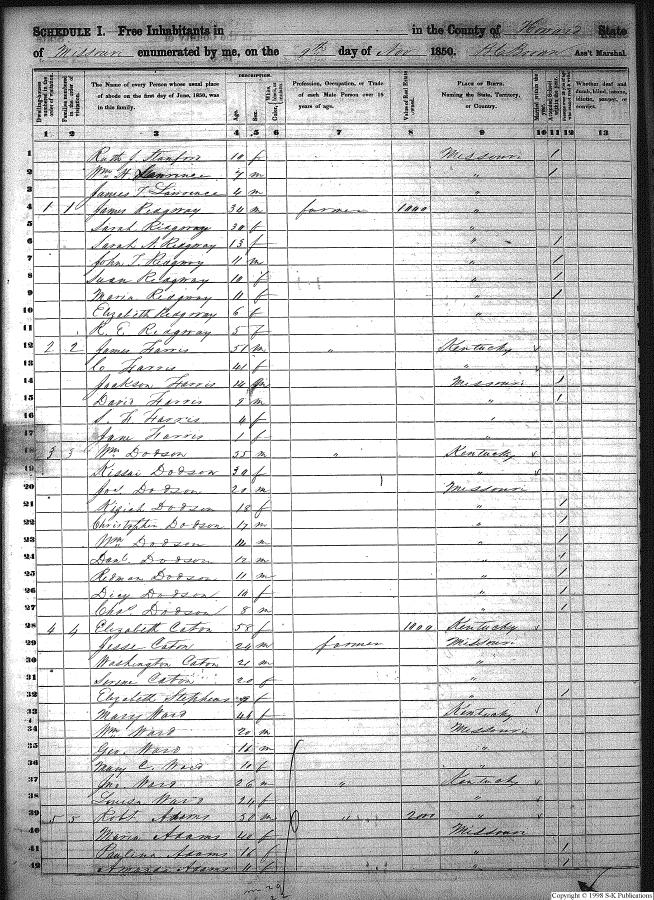 SCHEDULE I. Free Inhabitants in in the County of Howard State
of Missouri enumerated by me, on the 9th day of Nov 1850. Ass't Marshal.
DESCRIPTION.
Dwelling-houses numbered in the order of visitation.
Families numbered in the order of visitation.
The Name of every Person whose usual place of abode on the first day of June, 1850, was in this family.
Age.
Sex.
Color,
Profession, Occupation, or Trade of each Male Person over 15 years of age.
Value of Real Estate owned.
PLACE OF BIRTH. Naming the State, Territory, or Country.
Married within the year.
Whether deaf and dumb, blind, insane, idiotic, pauper, or convict.
1 2 3 4 5 6 7 8 9 10 11 12 13
1 Ruth J. Stanford 10 f Missouri 1
2 Wm H Lawrence 7 m " 1
3 James T Lawrence 4 m "
4 1 1 James Ridgway 34 m farmer 1000 "
5 Sarah Ridgway 30 f "
6 Sarah A. Ridgway 13 f " 1
7 John T Ridgway 11 m " 1
8 Susan Ridgway 10 f " 1
9 Maria Ridgway 11 f " 1
10 Elizabeth Ridgway 6 f "
11 R. E. Ridgway 5 f
12 2 2 James Harris 51 m " Kentucky
13 C Harris 41 f "
14 Jackson Harris 14 m Missouri 1
15 David Harris 9 m " 1
16 S. F. Harris 4 f "
17 Jane Harris 1 f "
18 3 3 Wm Dodson 55 m " Kentucky
19 Dodson 39 f "
20 Jos Dodson 20 m Missouri
21 Dodson 18 f " 1
22 Christopher Dodson 17 m " 1
23 Wm Dodson 14 m " 1
24 Danl Dodson 12 m " 1
25 Redman Dodson 11 m " 1
26 Dicy Dodson 10 f " 1
27 Chas Dodson 8 m " 1
28 4 4 Elizabeth Caton 58 f 1000 Kentucky
29 Jesse Caton 24 m farmer Missouri
30 Washington Caton 21 m "
31 Caton 20 f "
32 Elizabeth Stephens f " 1
33 Mary Ward 46 f Kentucky
34 Wm Ward 20 m Missouri
35 Geo. Ward 16 m "
36 Mary C. Ward 10 f "
37 Ward 26 m " Kentucky
38 Louisa Ward 24 f "
39 5 5 Robt Adams 50 m " 2000 "
40 Maria Adams 40 f Missouri
41 Paulina Adams 16 f " 1
42 Amanda Adams 11 f " 1
Copyright © 1998 S-K Publications